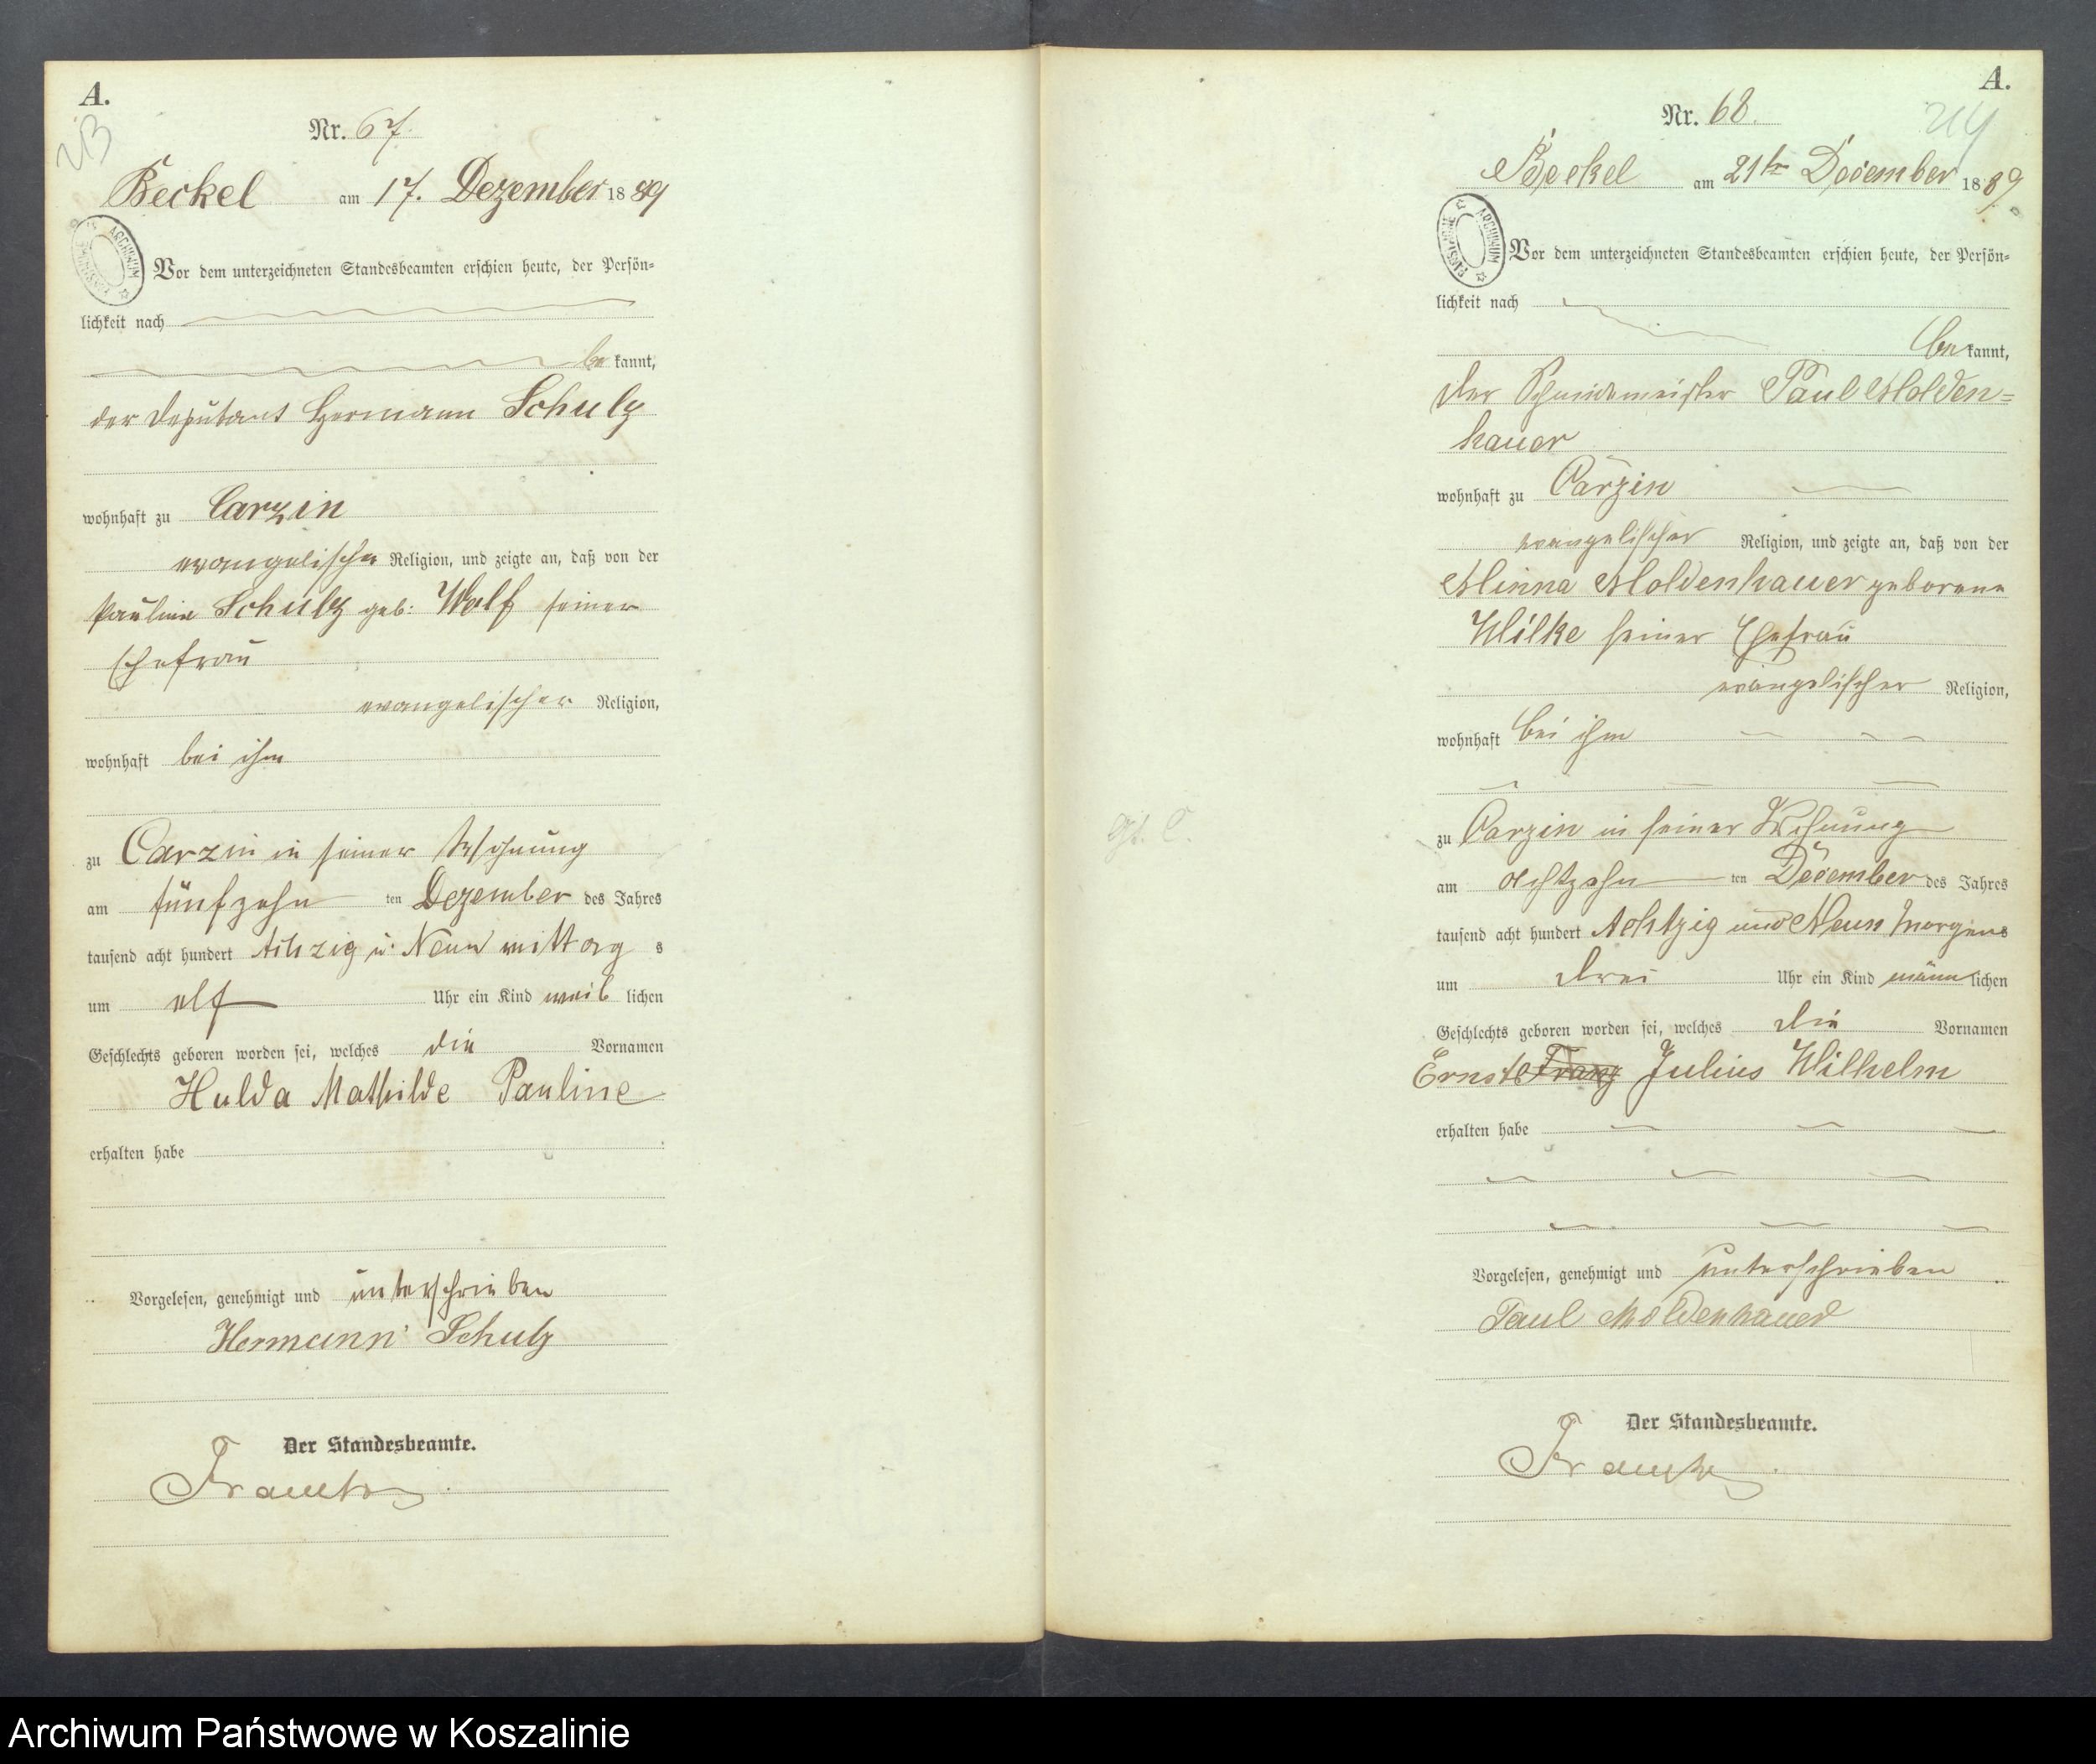 A.
213
Nr. 67.
Beckel am 17. Dezember 1889
Vor dem unterzeichneten Standesbeamten erschien heute, der Persön=
lichkeit nach
bekannt,
der Deputant Hermann Schulz
wohnhaft zu Carzin
evangelischer Religion, und zeigte an, daß von der
Pauline Schulz geb: Wolf seiner
Ehefrau
evangelischer Religion,
wohnhaft bei ihm
zu Carzin in seiner Wohnung
am fünfzehn ten Dezember des Jahres
tausend acht hundert Achzig u. Neun mittags
um elf Uhr ein Kind weiblichen
Geschlechts geboren worden sei, welches die Vornamen
Hulda Mathilde Pauline
erhalten habe
Vorgelesen, genehmigt und unterschrieben
Hermann Schulz
Der Standesbeamte.
A.
214
Nr. 68.
Beckel am 21ten December 1889
ARCHIWUM
Vor dem unterzeichneten Standesbeamten erschien heute, der Persön=
lichkeit nach
bekannt,
der Schmidemeister Paul Molden=
hauer
wohnhaft zu Carzin
evangelischer Religion, und zeigte an, daß von der
Minna Moldenhauer geborene
Wilke seiner Ehefrau
evangelischer Religion,
wohnhaft bei ihm
zu Carzin in seiner Wohnung
am achtzehn ten December des Jahres
tausend acht hundert Achtzig und Neun Morgens
um drei Uhr ein Kind männlichen
Geschlechts geboren worden sei, welches die Vornamen
Ernst Franz Julius Wilhelm
erhalten habe
Vorgelesen, genehmigt und unterschrieben
Paul Moldenhauer
Der Standesbeamte.
Archiwum Państwowe w Koszalinie